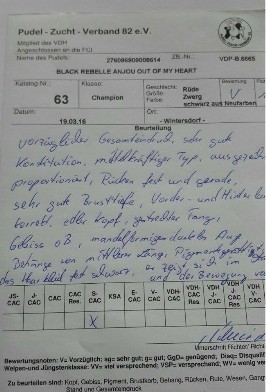 Pudel - Zucht - Verband 82 e.V.
Mitglied des VDH
Angeschlossen an die FCI
Name des Pudels: 276098909008614 ZB.-Nr.: VDP-B.6665
BLACK REBELLE ANJOU OUT OF MY HEART
Katalog-Nr.: Klasse: Geschlecht: Rüde Bewertung
63 Champion Größe: Zwerg
Farbe: schwarz aus Neufarben
Datum: Ort:
19.03.16 - Wintersdorf -
Beurteilung
vorzüglicher Gesamteindruck, sehr gute
Kondition, mittelkräftiger Typ, ausgezeichnet
proportioniert, Rücken fest und gerade,
sehr gute Brusttiefe, Vorder- und Hinter
korrekt, edler Kopf, gestreckter Fang,
Gebiss oB, mandelförmiges dunkles Auge
Behänge von mittlerer Länge, Pigment
das Haarkleid ist schwarz, er zeigt sich im
und der Bewegung
JS-CAC J-CAC CAC CAC Res. S-CAC KSA E-CAC V-CAC VDH-CAC VDH-CAC Res. VDH-J-CAC VDH-V-CAC
X
Unterschrift Richter/
Bewertungsnoten: V= Vorzüglich; sg= sehr gut; g= gut; GgD= genügend; Disq= Disqualif
Welpen-und Jüngstenklasse: VV= viel versprechend; VSP= versprechend; WV= wenig ver
Zu beurteilen sind: Kopf, Gebiss, Pigment, Brustkorb, Behang, Rücken, Rute, Wesen, Gang
Stand und Gesamteindruck